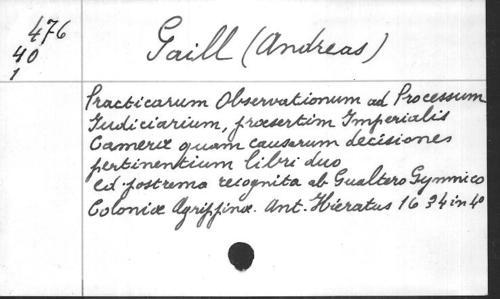 476
40
1
Gaill (Andreas)
Practicarum Observationum ad Processum
Iudiciarium, præsertim Imperialis
Cameræ quam causarum decisiones
pertinentium libri duo
Ed. postrema recognita ab Gualtero Gymnico
Coloniæ Agrippinæ. Ant. Hieratus 1634 in 4º